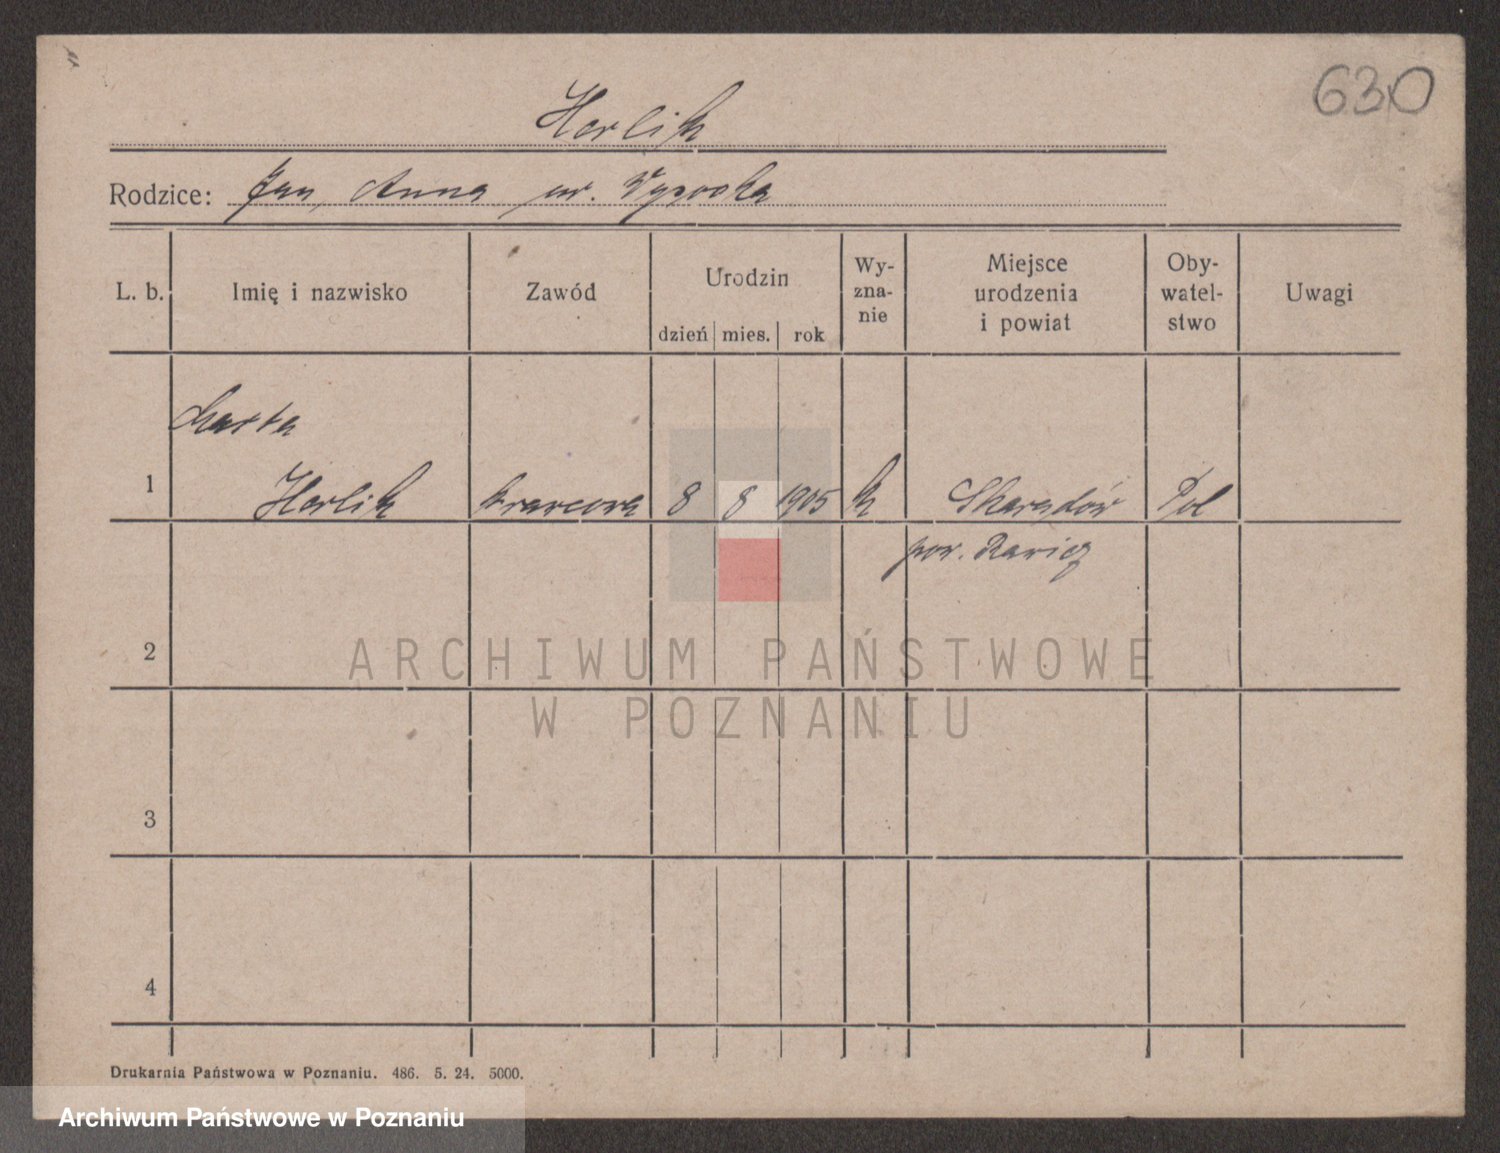 630
Herlik
Rodzice: Jan, Anna ur. Wysocka
L. b. Imię i nazwisko Zawód Urodzin dzień mies. rok Wy-zna-nie Miejsce urodzenia i powiat Oby-watel-stwo Uwagi
Marta
1 Herlik krawcowa 8 8 1905 k Skaradów Pol
pow. Rawicz
2
ARCHIWUM PAŃSTWOWE
W POZNANIU
3
4
Drukarnia Państwowa w Poznaniu. 486. 5. 24. 5000.
Archiwum Państwowe w Poznaniu